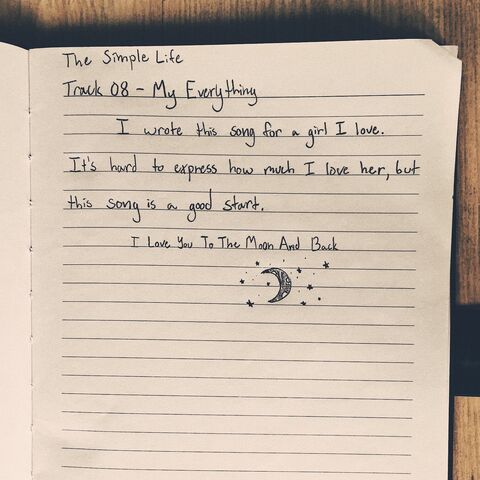 The Simple Life
Track 08 - My Everything
I wrote this song for a girl I love.
It's hard to express how much I love her, but
this song is a good start.
I Love You To The Moon And Back